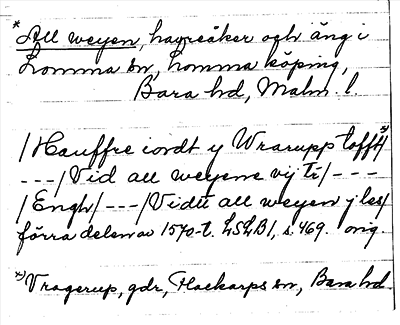 * All weyen, havreåker och äng i
Lomma sn, Lomma köping,
Bara hd, Malm. l.
/Hauffre iordt y Wrarupp tofft *)/
---/Vid all weyenn vij tr/---
/Engh/---/Vidtt all weyen j les/
förra delen av 1570-t. LSLB 1, s. 469. orig.
*) Vragerup, gdr, Flackarps sn, Bara hd.